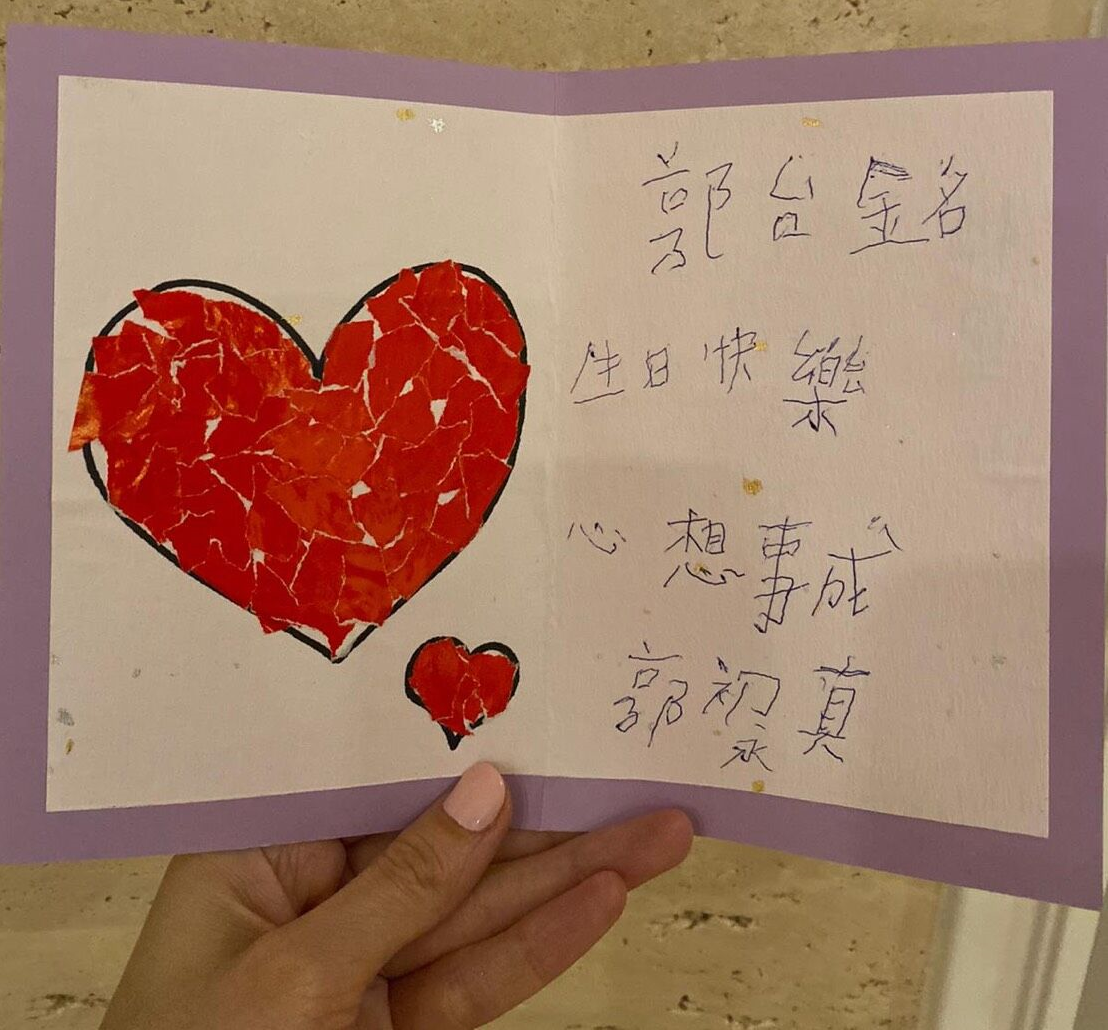 郭台銘
生日快樂
心想事成
郭真